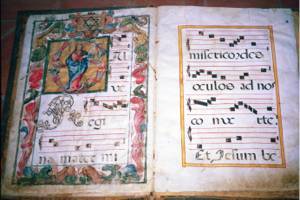 ve
Regi
na mater mi
misericordes
oculos ad nos
co nve rte
Et, Jesum be